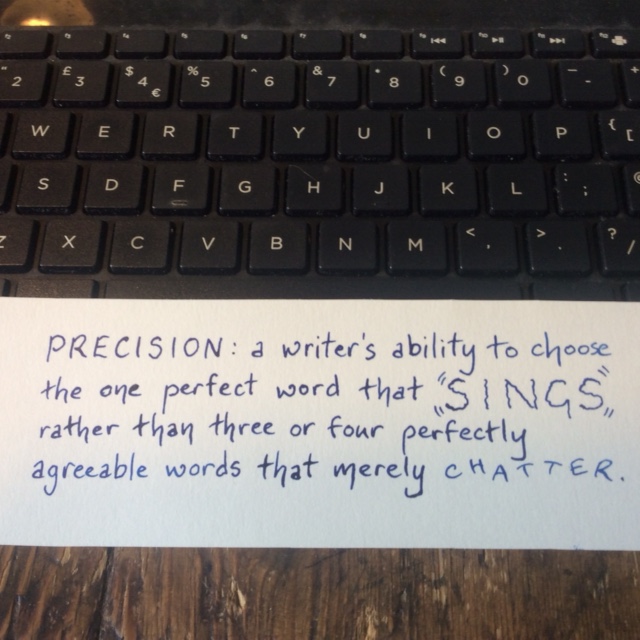 " 2 £ 3 $ 4 € % 5 ^ 6 & 7 * 8 ( 9 ) 0 _ -
W E R T Y U I O P { [
S D F G H J K L : ;
Z X C V B N M < , > . ? /
PRECISION: a writer's ability to choose
the one perfect word that "SINGS"
rather than three or four perfectly
agreeable words that merely CHATTER.